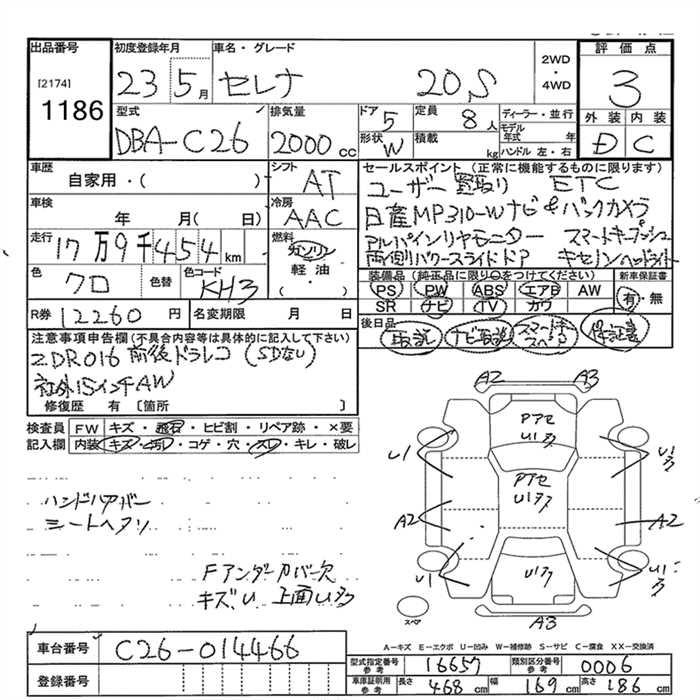 出品番号
[2174]
1186
初度登録年月
23 5月
車名・グレード
セレナ 20S
2WD
・
4WD
評価点
3
外装 内装
D C
型式
DBA-C26
排気量
2000 cc
ドア 5
形状 W
定員 8人
積載 kg
ディーラー・並行
モデル年式 年
ハンドル 左・右
車歴
自家用・( )
シフト
AT
車検
年 月( 日)
冷房
AAC
走行
17万9千454km
燃料
ガソリン
軽油
・( )
色
クロ
色替
色コード
KH3
R券 12260円
名変期限 月 日
セールスポイント (正常に機能するものに限ります)
ユーザー買取り ETC
日産MP310-Wナビ&バックカメラ
アルパインリヤモニター スマートキープッシュ
両側パワースライドドア キセノンヘッドライト
装備品(純正品に限り○をつけてください)
PS PW ABS エアB AW
SR ナビ TV カワ
新車保証書
有・無
後日品
取説 ナビ取説 スマートキースペア 保証書
注意事項申告欄(不具合内容等は具体的に記入して下さい)
ZDR016 前後ドラレコ (SDなし)
社外15インチAW
修復歴 有 [箇所 ]
検査員記入欄
FW キズ・飛石・ヒビ割・リペア跡・×要
内装 キズ・汚レ・コゲ・穴・スレ・キレ・破レ
ハンドルカバー
シートヘタリ
Fアンダーカバー欠
キズU 上面U33
A2 A3
Pアセ
U13
U1 U13
Pアセ
U133
A2 A2
U1 U13 U13
スペア
A3
A-キズ E-エクボ U-凹み W-補修跡 S-サビ C-腐食 XX-交換済
車台番号 C26-014466
登録番号
型式指定番号参考 16657
類別区分番号参考 0006
車庫証明用参考 長さ 468cm 幅 169cm 高さ 186cm